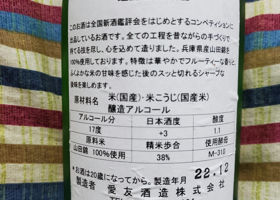 このお酒は全国新酒鑑評会をはじめとするコンペティションに
出品しているお酒です。全ての工程を昔ながらの手づくりで
持てる技を尽し、心を込めて造りました。兵庫県産山田錦を
100%使用しております。特徴は華やかでフルーティーな香りと、
ふくよかな米の甘味を感じた後のスッと切れるシャープな
後味を楽しめます。
原材料名 米(国産)・米こうじ(国産米)
醸造アルコール
アルコール分 日本酒度 酸度
17度 +3 1.1
原料米 精米歩合 使用酵母
山田錦 100%使用 38% M-310
●お酒は20歳になってから。製造年月 22.12
製造者 愛友酒造株式会社